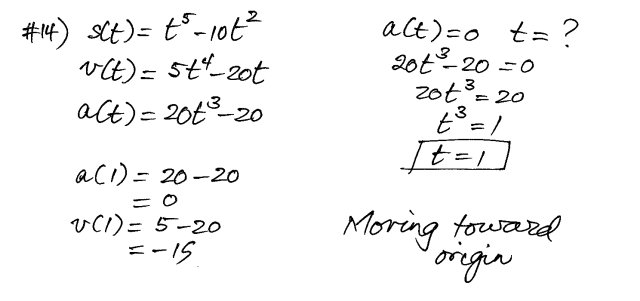 #14) s(t) = t⁵ - 10t²
v(t) = 5t⁴ - 20t
a(t) = 20t³ - 20
a(1) = 20 - 20
= 0
v(1) = 5 - 20
= -15
a(t) = 0 t = ?
20t³ - 20 = 0
20t³ = 20
t³ = 1
t = 1
Moving toward
origin